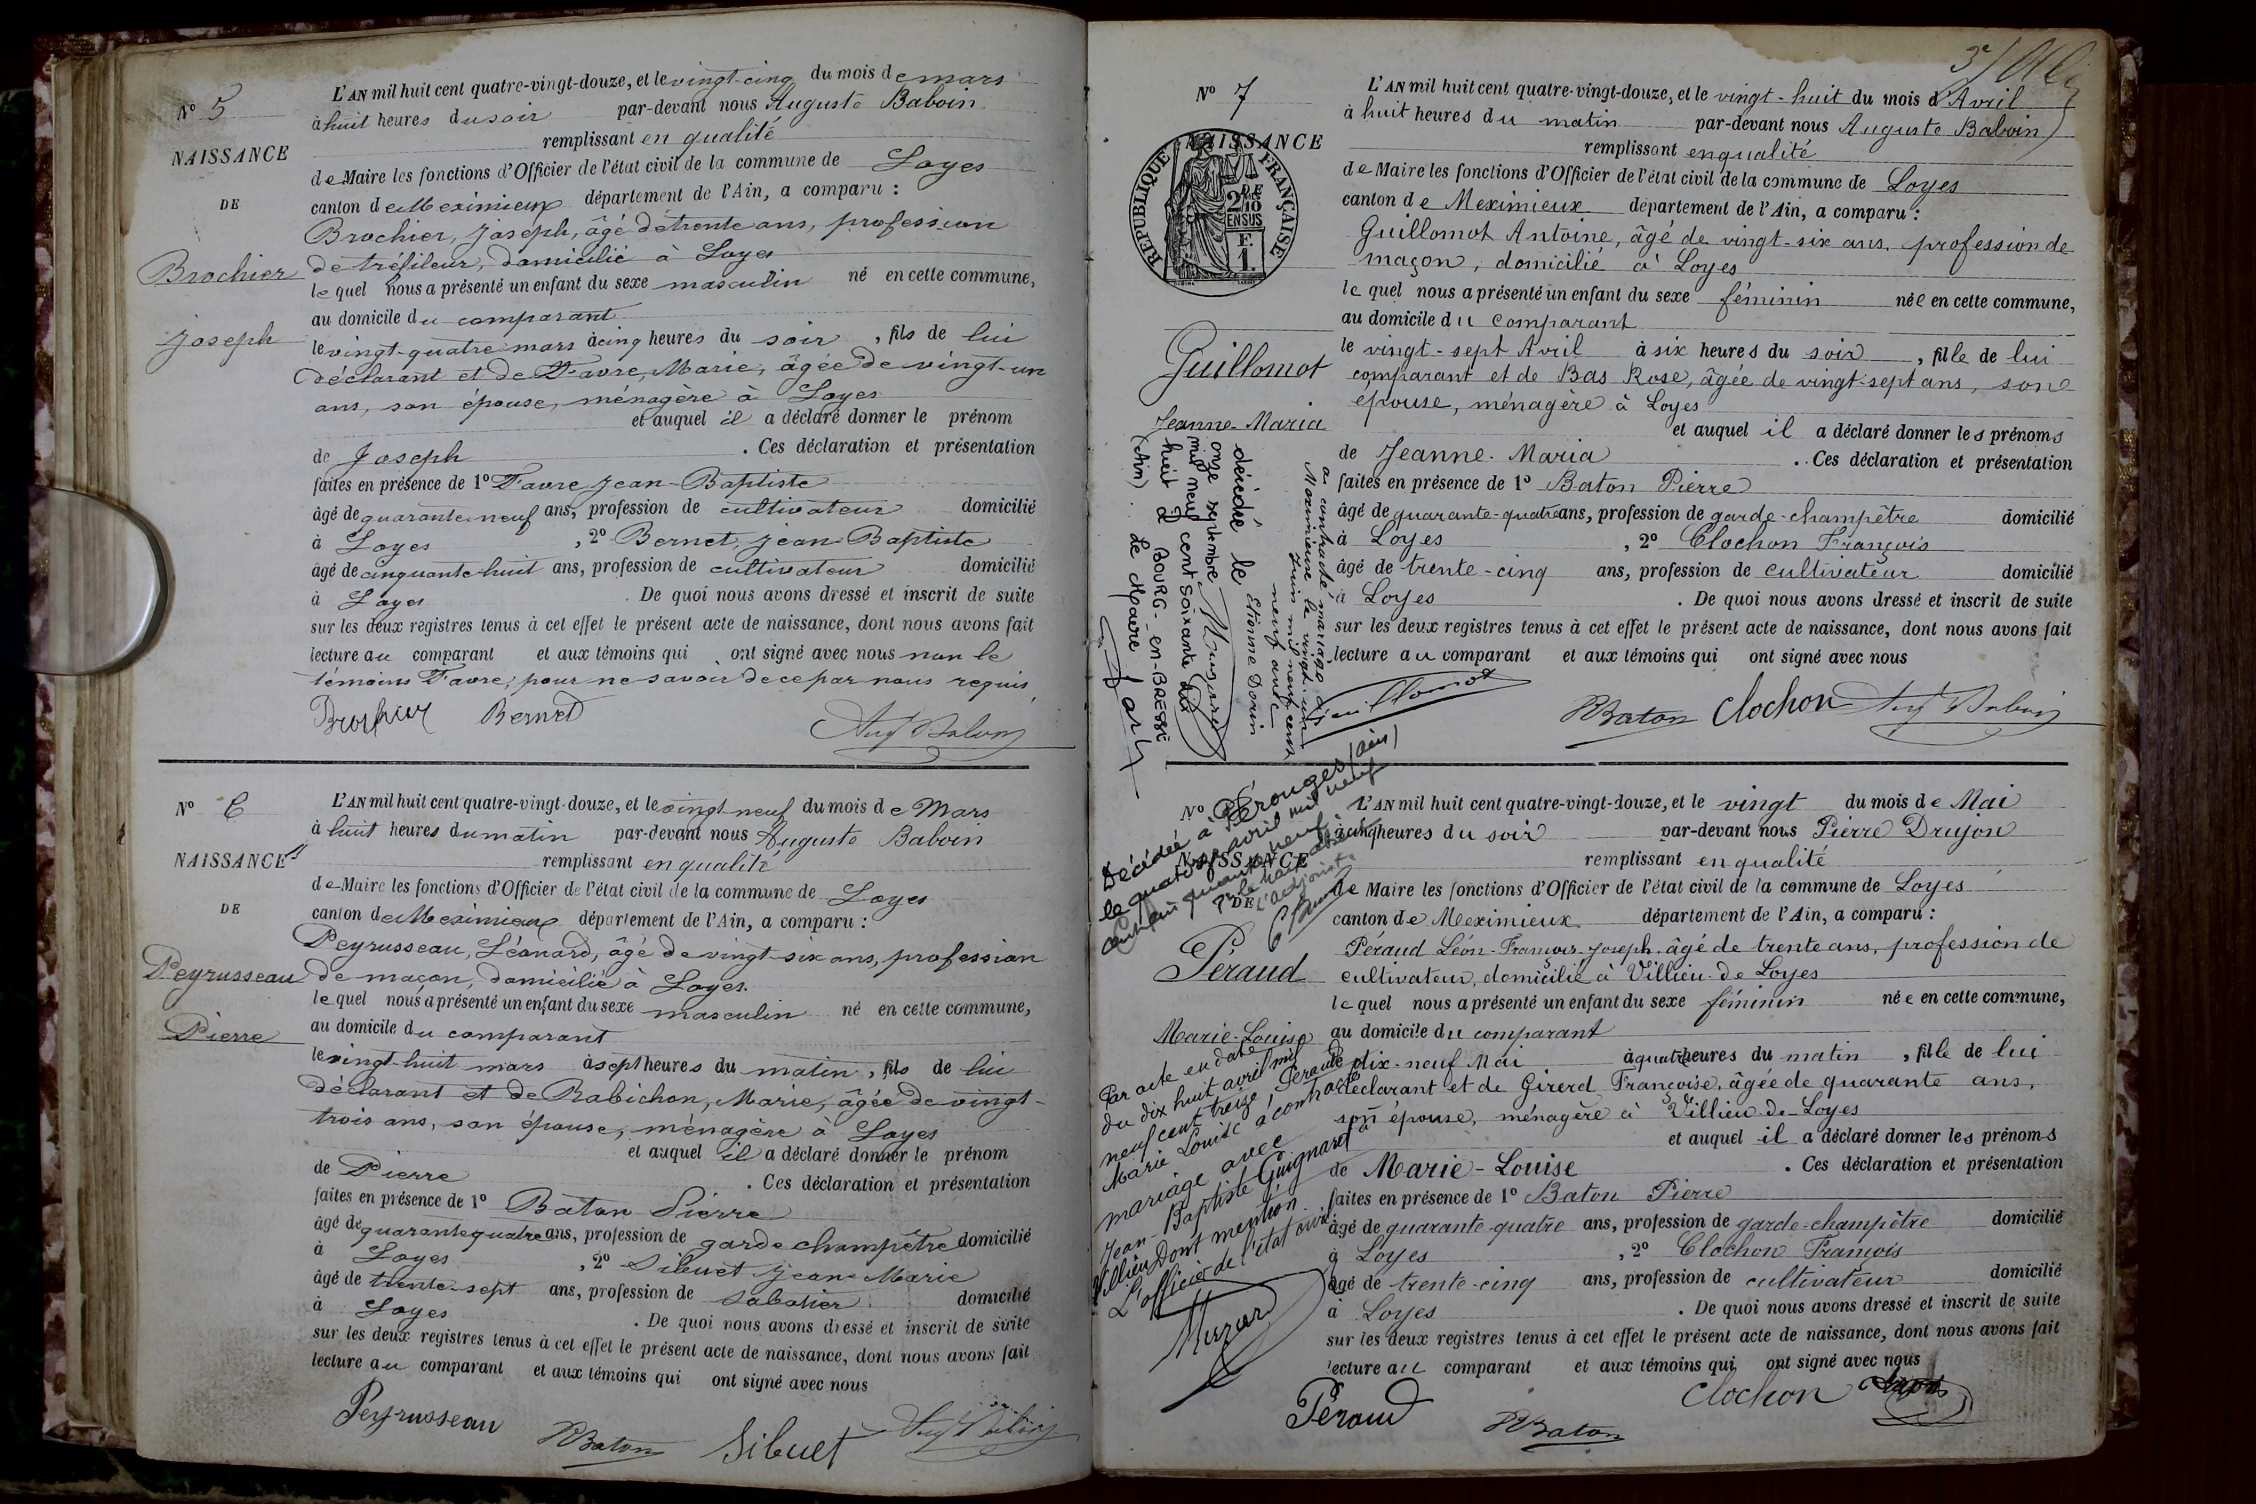 N° 5
NAISSANCE
DE
Brochier
Joseph
L'AN mil huit cent quatre-vingt-douze, et le vingt-cinq du mois de mars
à huit heures du soir par-devant nous Auguste Baboin
remplissant en qualité
de Maire les fonctions d'Officier de l'état civil de la commune de Loyes
canton de Meximieux département de l'Ain, a comparu :
Brochier, Joseph, âgé de trente ans, profession
de tréfileur, domicilié à Loyes
lequel nous a présenté un enfant du sexe masculin né en cette commune,
au domicile du comparant
le vingt-quatre mars à cinq heures du soir, fils de lui
déclarant et de Favre, Marie, âgée de vingt-un
ans, son épouse, ménagère à Loyes
et auquel il a déclaré donner le prénom
de Joseph. Ces déclaration et présentation
faites en présence de 1° Favre Jean-Baptiste
âgé de quarante-neuf ans, profession de cultivateur domicilié
à Loyes, 2° Bernet, Jean Baptiste
âgé de cinquante-huit ans, profession de cultivateur domicilié
à Loyes. De quoi nous avons dressé et inscrit de suite
sur les deux registres tenus à cet effet le présent acte de naissance, dont nous avons fait
lecture au comparant et aux témoins qui ont signé avec nous non le
témoins Favre, pour ne savoir de ce par nous requis,
Brochier Bernet Aug Baboin
N° 6
NAISSANCE
DE
Peyrusseau
Pierre
L'AN mil huit cent quatre-vingt-douze, et le vingt-neuf du mois de Mars
à huit heures du matin par-devant nous Auguste Baboin
remplissant en qualité
de Maire les fonctions d'Officier de l'état civil de la commune de Loyes
canton de Meximieux département de l'Ain, a comparu :
Peyrusseau, Léonard, âgé de vingt-six ans, profession
de maçon, domicilié à Loyes.
lequel nous a présenté un enfant du sexe masculin né en cette commune,
au domicile du comparant
le vingt-huit mars à sept heures du matin, fils de lui
déclarant et de Rabichon, Marie, âgée de vingt-
trois ans, son épouse, ménagère à Loyes
et auquel il a déclaré donner le prénom
de Pierre. Ces déclaration et présentation
faites en présence de 1° Baton Pierre
âgé de quarante quatre ans, profession de garde champêtre domicilié
à Loyes, 2° Sibuet Jean-Marie
âgé de trente-sept ans, profession de sabotier domicilié
à Loyes. De quoi nous avons dressé et inscrit de suite
sur les deux registres tenus à cet effet le présent acte de naissance, dont nous avons fait
lecture au comparant et aux témoins qui ont signé avec nous
Peyrusseau PBaton Sibuet Aug Baboin
N° 7
NAISSANCE
REPUBLIQUE FRANÇAISE
2/10 EN SUS
F. 1.
Guillomot
Jeanne-Maria
a contracté mariage à
Meximieux le vingt-un
Juin mil neuf cent
neuf avec
Etienne Dorin
décédée le
onze septembre
mil neuf cent soixante dix
huit à BOURG-en-BRESSE
(Ain). Le Maire
L'AN mil huit cent quatre-vingt-douze, et le vingt-huit du mois d'Avril
à huit heures du matin par-devant nous Auguste Baboin
remplissant en qualité
de Maire les fonctions d'Officier de l'état civil de la commune de Loyes
canton de Meximieux département de l'Ain, a comparu :
Guillomot Antoine, âgé de vingt-six ans, profession de
maçon, domicilié à Loyes
lequel nous a présenté un enfant du sexe féminin née en cette commune,
au domicile du comparant
le vingt-sept Avril à six heures du soir, fille de lui
comparant et de Bas Rose, âgée de vingt-sept ans, son
épouse, ménagère à Loyes
et auquel il a déclaré donner les prénoms
de Jeanne-Maria. Ces déclaration et présentation
faites en présence de 1° Baton Pierre
âgé de quarante-quatre ans, profession de garde-champêtre domicilié
à Loyes, 2° Clochon François
âgé de trente-cinq ans, profession de cultivateur domicilié
à Loyes. De quoi nous avons dressé et inscrit de suite
sur les deux registres tenus à cet effet le présent acte de naissance, dont nous avons fait
lecture au comparant et aux témoins qui ont signé avec nous
Guillomot PBaton Clochon Aug Baboin
N°
NAISSANCE
DE
Décédée à Pérouges (Ain)
le quatorze avril mil neuf
cent quarante neuf
L'adjoint.
Péraud
Marie-Louise
Par acte en date
du dix huit avril mil
neuf cent treize, Péraud
Marie Louise a contracté
mariage avec
Jean-Baptiste Guignard à
Villieu Dont mention.
L'officier de l'état civil
L'AN mil huit cent quatre-vingt-douze, et le vingt du mois de Mai
à cinq heures du soir par-devant nous Pierre Drujon
remplissant en qualité
de Maire les fonctions d'Officier de l'état civil de la commune de Loyes
canton de Meximieux département de l'Ain, a comparu :
Péraud Léon-François-Joseph, âgé de trente ans, profession de
cultivateur, domicilié à Villieu-de Loyes
lequel nous a présenté un enfant du sexe féminin née en cette commune,
au domicile du comparant
le dix-neuf Mai à quatre heures du matin, fille de lui
déclarant et de Girerd Françoise, âgée de quarante ans,
son épouse, ménagère à Villieu-de-Loyes
et auquel il a déclaré donner les prénoms
de Marie-Louise. Ces déclaration et présentation
faites en présence de 1° Baton Pierre
âgé de quarante-quatre ans, profession de garde-champêtre domicilié
à Loyes, 2° Clochon François
âgé de trente-cinq ans, profession de cultivateur domicilié
à Loyes. De quoi nous avons dressé et inscrit de suite
sur les deux registres tenus à cet effet le présent acte de naissance, dont nous avons fait
lecture au comparant et aux témoins qui ont signé avec nous
Péraud PBaton Clochon